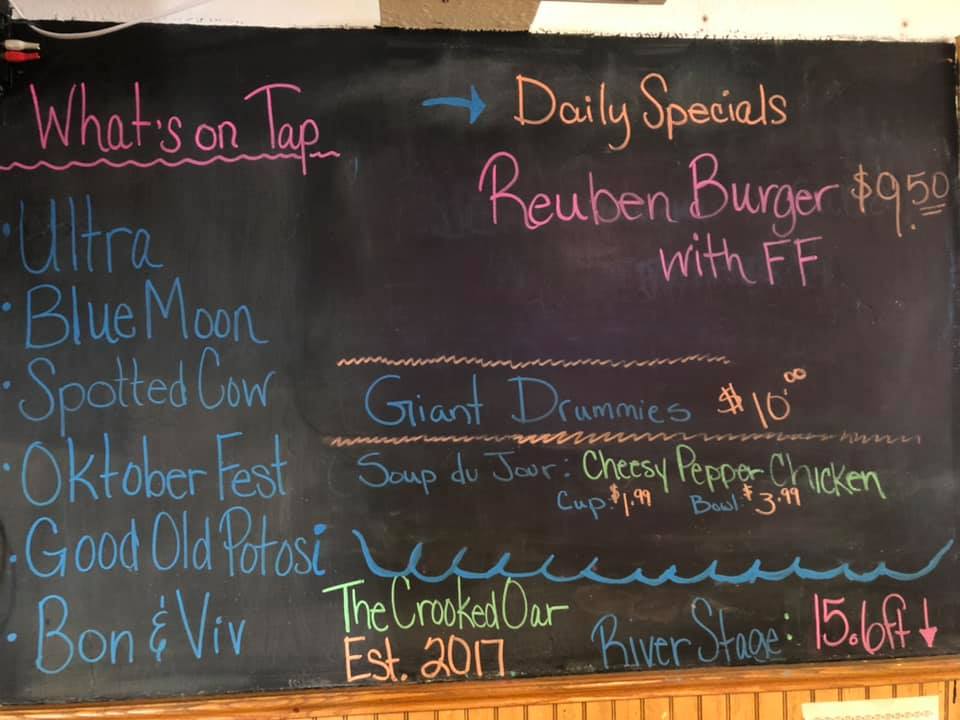 What's on Tap
• Ultra
• Blue Moon
• Spotted Cow
• Oktober Fest
• Good Old Potosi
• Bon & Viv
→ Daily Specials
Reuben Burger $9.50
with FF
Giant Drummies $10.00
Soup du Jour: Cheesy Pepper Chicken
Cup: $1.99 Bowl: $3.99
The Crooked Oar
Est. 2017
River Stage: 15.6ft ↓